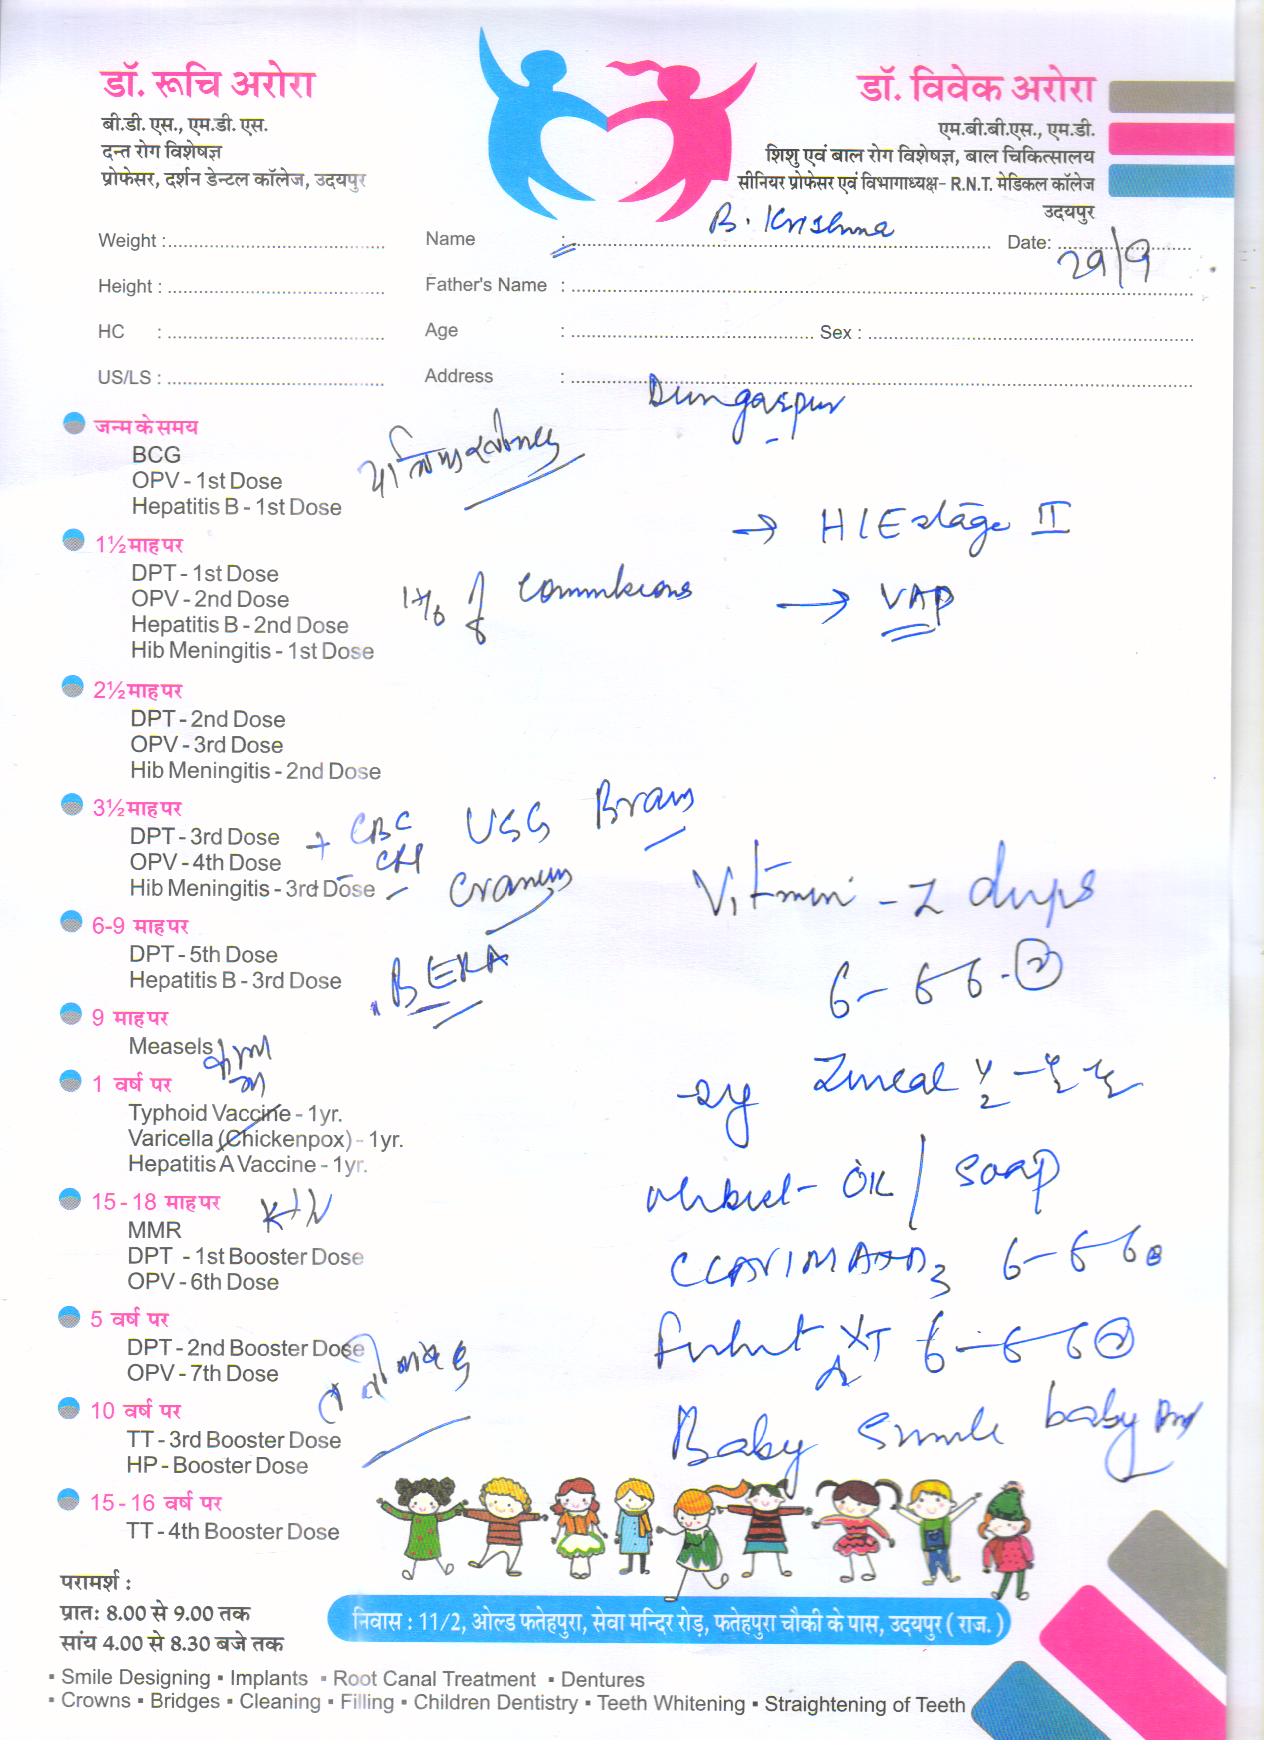 डॉ. रूचि अरोरा
बी.डी. एस., एम.डी. एस.
दन्त रोग विशेषज्ञ
प्रोफेसर, दर्शन डेन्टल कॉलेज, उदयपुर
डॉ. विवेक अरोरा
एम.बी.बी.एस., एम.डी.
शिशु एवं बाल रोग विशेषज्ञ, बाल चिकित्सालय
सीनियर प्रोफेसर एवं विभागाध्यक्ष- R.N.T. मेडिकल कॉलेज
उदयपुर
Weight : Name : B. Krishna Date: 29/9
Height : Father's Name :
HC : Age : Sex :
US/LS : Address : Dungarpur
जन्म के समय
BCG
OPV - 1st Dose
Hepatitis B - 1st Dose
→ HIE stage II
1½ माह पर
DPT - 1st Dose
OPV - 2nd Dose
Hepatitis B - 2nd Dose
Hib Meningitis - 1st Dose
→ VAP
2½ माह पर
DPT - 2nd Dose
OPV - 3rd Dose
Hib Meningitis - 2nd Dose
3½ माह पर
DPT - 3rd Dose + CBC USG Brain
OPV - 4th Dose
Hib Meningitis - 3rd Dose Cranium
Vitmin - Z drops
6-9 माह पर
DPT - 5th Dose
Hepatitis B - 3rd Dose BERA
6 - 6 6 -
9 माह पर
Measels
1 वर्ष पर
Typhoid Vaccine - 1yr.
Varicella (Chickenpox) - 1yr.
Hepatitis A Vaccine - 1yr.
OK / Soap
15 - 18 माह पर
MMR
DPT - 1st Booster Dose
OPV - 6th Dose
6 - 6 6
5 वर्ष पर
DPT - 2nd Booster Dose
OPV - 7th Dose
XT 6 - 6 6
10 वर्ष पर
TT - 3rd Booster Dose
HP - Booster Dose
Baby Smile baby
15 - 16 वर्ष पर
TT - 4th Booster Dose
परामर्श :
प्रातः 8.00 से 9.00 तक
सांय 4.00 से 8.30 बजे तक
निवास : 11/2, ओल्ड फतेहपुरा, सेवा मन्दिर रोड़, फतेहपुरा चौकी के पास, उदयपुर ( राज. )
▪ Smile Designing ▪ Implants ▪ Root Canal Treatment ▪ Dentures
▪ Crowns ▪ Bridges ▪ Cleaning ▪ Filling ▪ Children Dentistry ▪ Teeth Whitening ▪ Straightening of Teeth